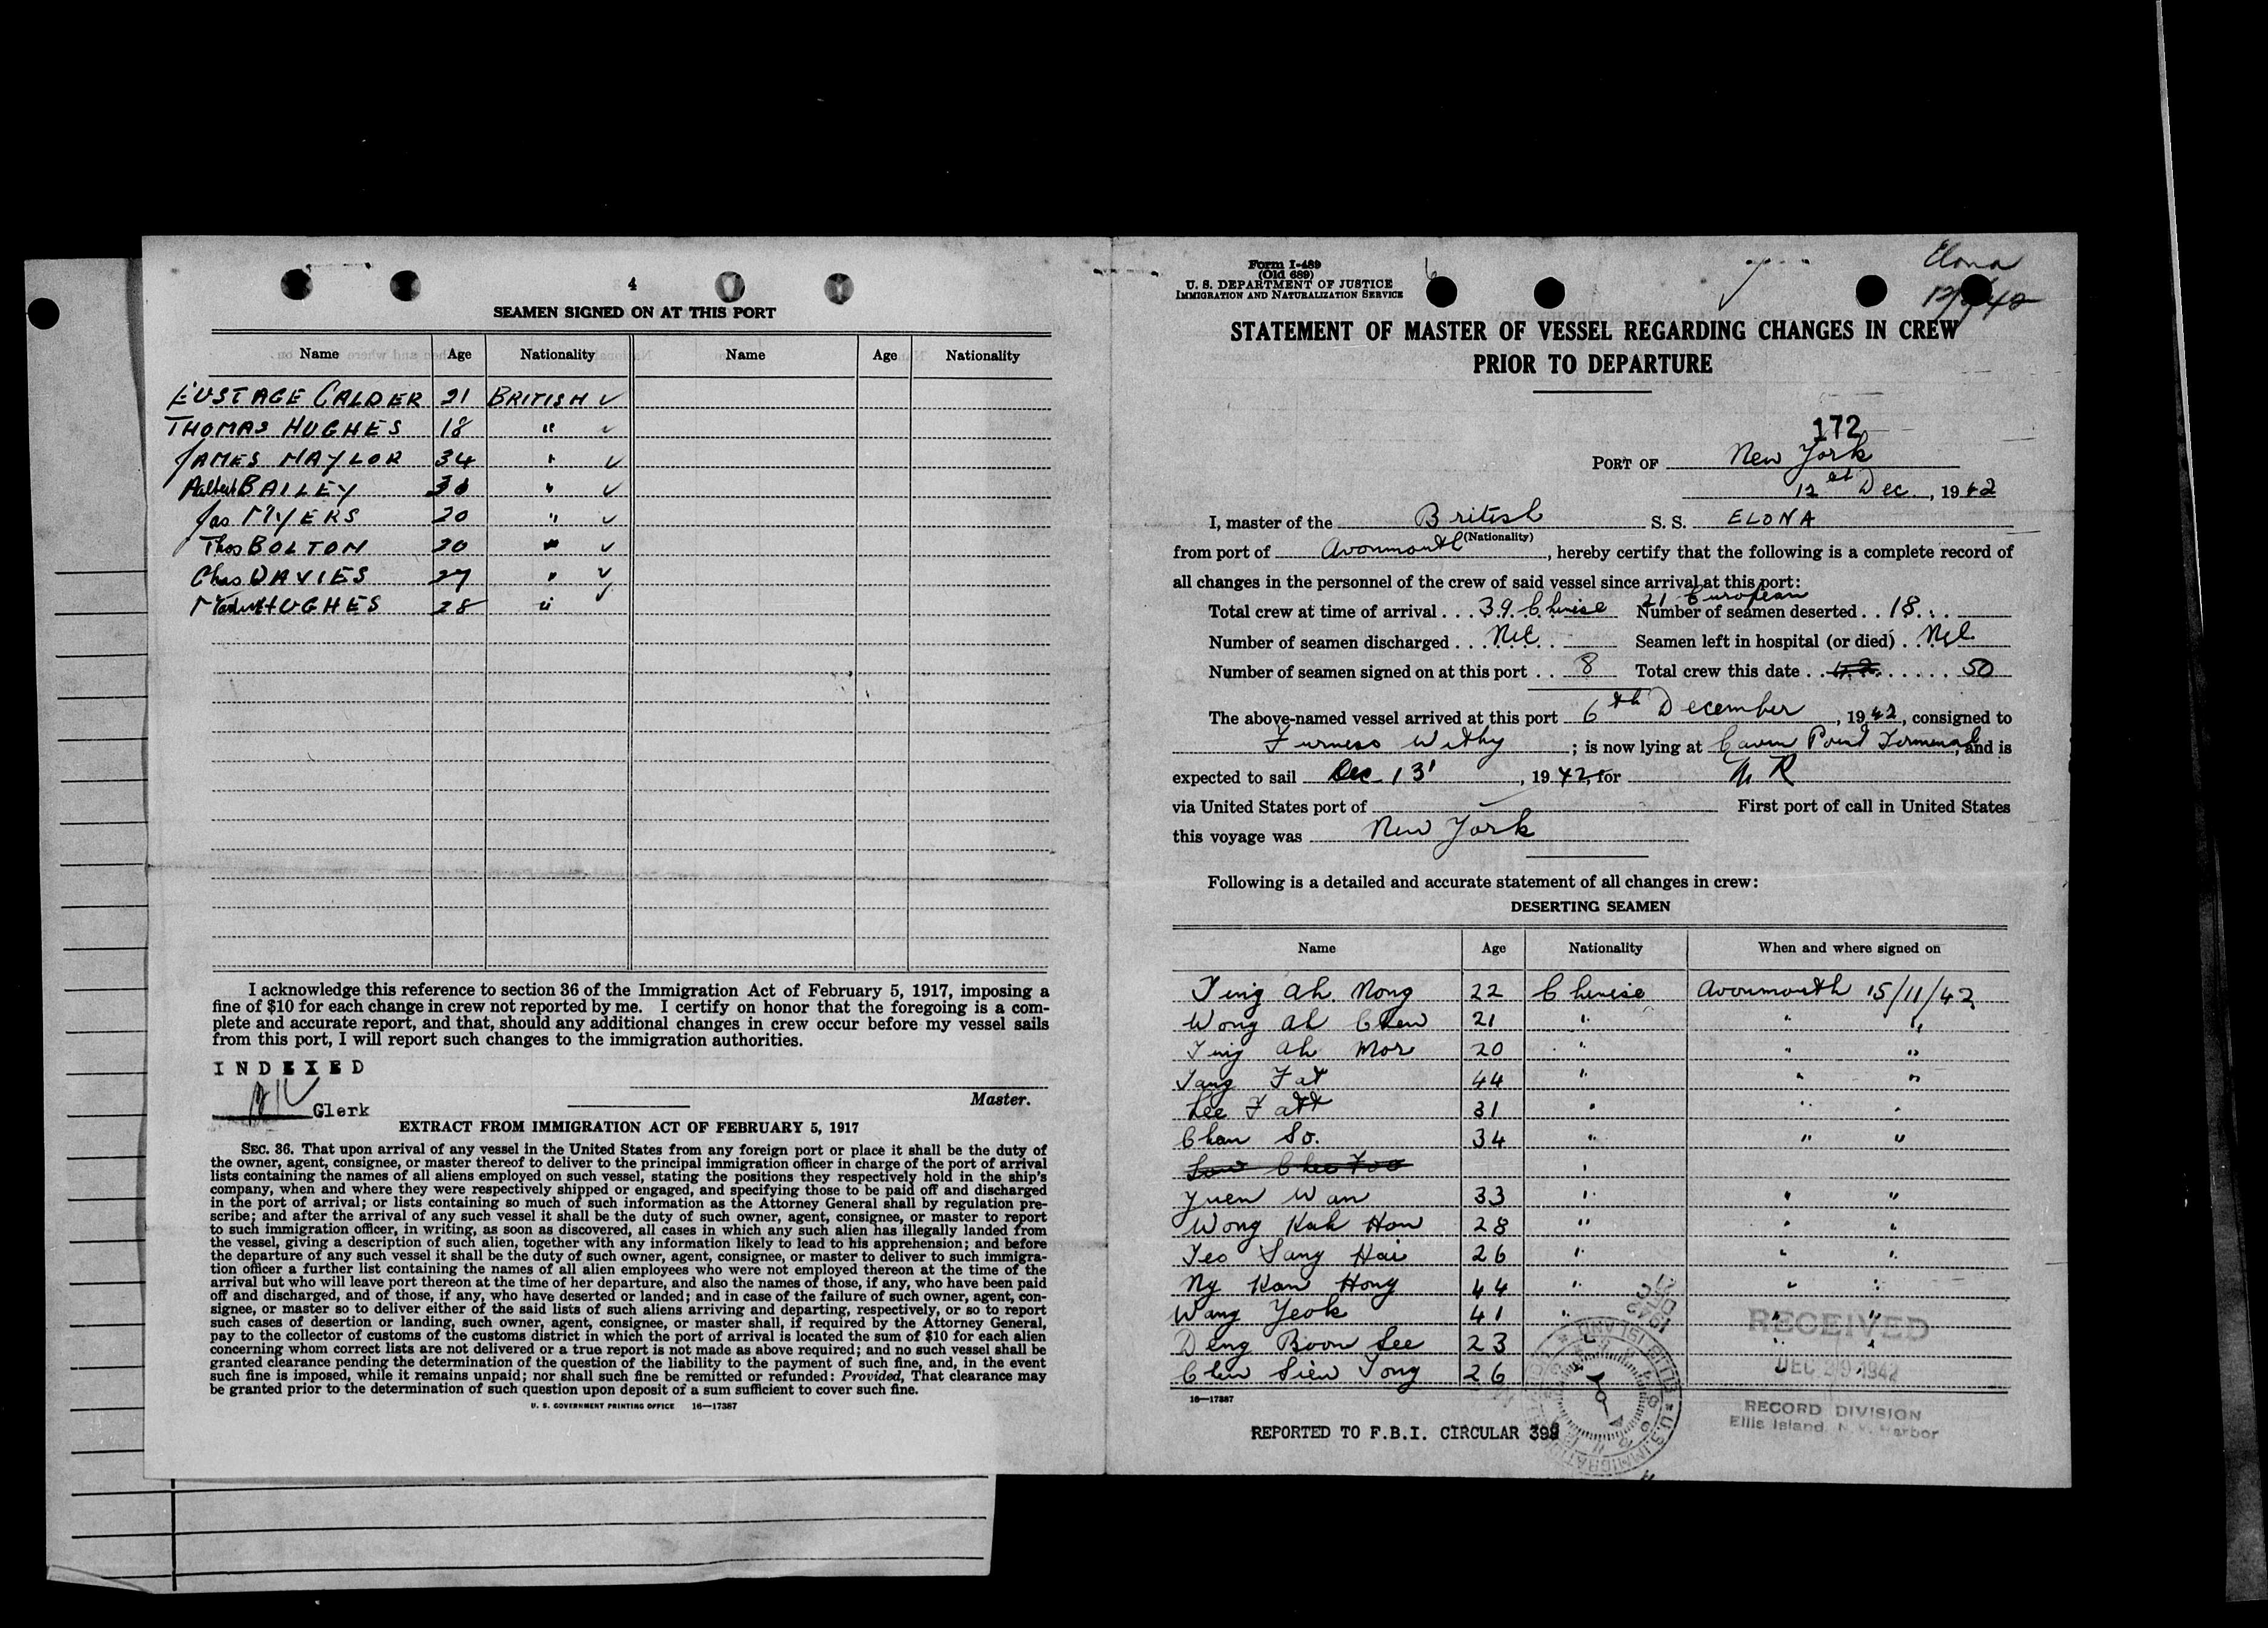 4
SEAMEN SIGNED ON AT THIS PORT
Name Age Nationality Name Age Nationality
EUSTACE CALDER 21 BRITISH ✓
THOMAS HUGHES 18 " ✓
JAMES NAYLOR 34 " ✓
Albert BAILEY " ✓
Jas MYERS 20 " ✓
Thos BOLTON 20 " ✓
Chas DAVIES 27 " ✓
HUGHES 28 " ✓
I acknowledge this reference to section 36 of the Immigration Act of February 5, 1917, imposing a
fine of $10 for each change in crew not reported by me. I certify on honor that the foregoing is a com-
plete and accurate report, and that, should any additional changes in crew occur before my vessel sails
from this port, I will report such changes to the immigration authorities.
INDEXED
Clerk
Master.
EXTRACT FROM IMMIGRATION ACT OF FEBRUARY 5, 1917
SEC. 36. That upon arrival of any vessel in the United States from any foreign port or place it shall be the duty of
the owner, agent, consignee, or master thereof to deliver to the principal immigration officer in charge of the port of arrival
lists containing the names of all aliens employed on such vessel, stating the positions they respectively hold in the ship's
company, when and where they were respectively shipped or engaged, and specifying those to be paid off and discharged
in the port of arrival; or lists containing so much of such information as the Attorney General shall by regulation pre-
scribe; and after the arrival of any such vessel it shall be the duty of such owner, agent, consignee, or master to report
to such immigration officer, in writing, as soon as discovered, all cases in which any such alien has illegally landed from
the vessel, giving a description of such alien, together with any information likely to lead to his apprehension; and before
the departure of any such vessel it shall be the duty of such owner, agent, consignee, or master to deliver to such immigra-
tion officer a further list containing the names of all alien employees who were not employed thereon at the time of the
arrival but who will leave port thereon at the time of her departure, and also the names of those, if any, who have been paid
off and discharged, and of those, if any, who have deserted or landed; and in case of the failure of such owner, agent, con-
signee, or master so to deliver either of the said lists of such aliens arriving and departing, respectively, or so to report
such cases of desertion or landing, such owner, agent, consignee, or master shall, if required by the Attorney General,
pay to the collector of customs of the customs district in which the port of arrival is located the sum of $10 for each alien
concerning whom correct lists are not delivered or a true report is not made as above required; and no such vessel shall be
granted clearance pending the determination of the question of the liability to the payment of such fine, and, in the event
such fine is imposed, while it remains unpaid; nor shall such fine be remitted or refunded: Provided, That clearance may
be granted prior to the determination of such question upon deposit of a sum sufficient to cover such fine.
U. S. GOVERNMENT PRINTING OFFICE 16—17387
Form I-489
(Old 689)
U. S. DEPARTMENT OF JUSTICE
IMMIGRATION AND NATURALIZATION SERVICE
Elona
STATEMENT OF MASTER OF VESSEL REGARDING CHANGES IN CREW
PRIOR TO DEPARTURE
172
PORT OF New York
12 Dec., 1942
I, master of the British S. S. ELONA
(Nationality)
from port of Avonmouth, hereby certify that the following is a complete record of
all changes in the personnel of the crew of said vessel since arrival at this port:
Total crew at time of arrival . . . 39 Chinese 21 European Number of seamen deserted . . 18
Number of seamen discharged . . . Nil Seamen left in hospital (or died) . . Nil
Number of seamen signed on at this port . . 8 Total crew this date . . 50
The above-named vessel arrived at this port 6th December, 1942, consigned to
Furness Withy; is now lying at Caven Point Terminal, and is
expected to sail Dec 13, 1942, for
via United States port of First port of call in United States
this voyage was New York
Following is a detailed and accurate statement of all changes in crew:
DESERTING SEAMEN
Name Age Nationality When and where signed on
Ting Ah Nong 22 Chinese Avonmouth 15/11/42
Wong Ah Chew 21 " " "
Ting Ah Mor 20 " " "
Tang Fat 44 " " "
Lee Fatt 31 " " "
Chan So. 34 " " "
Yuen Wan 33 " " "
Wong Kah How 28 " " "
Teo Sang Hai 26 " " "
Ng Kaw Hong 44 " " "
Wang Yeok 41 " " "
Deng Boon See 23 " " "
Chew Siew Tong 26
16—17387
RECEIVED
DEC 29 1942
RECORD DIVISION
Ellis Island, N. Y. Harbor
REPORTED TO F.B.I. CIRCULAR